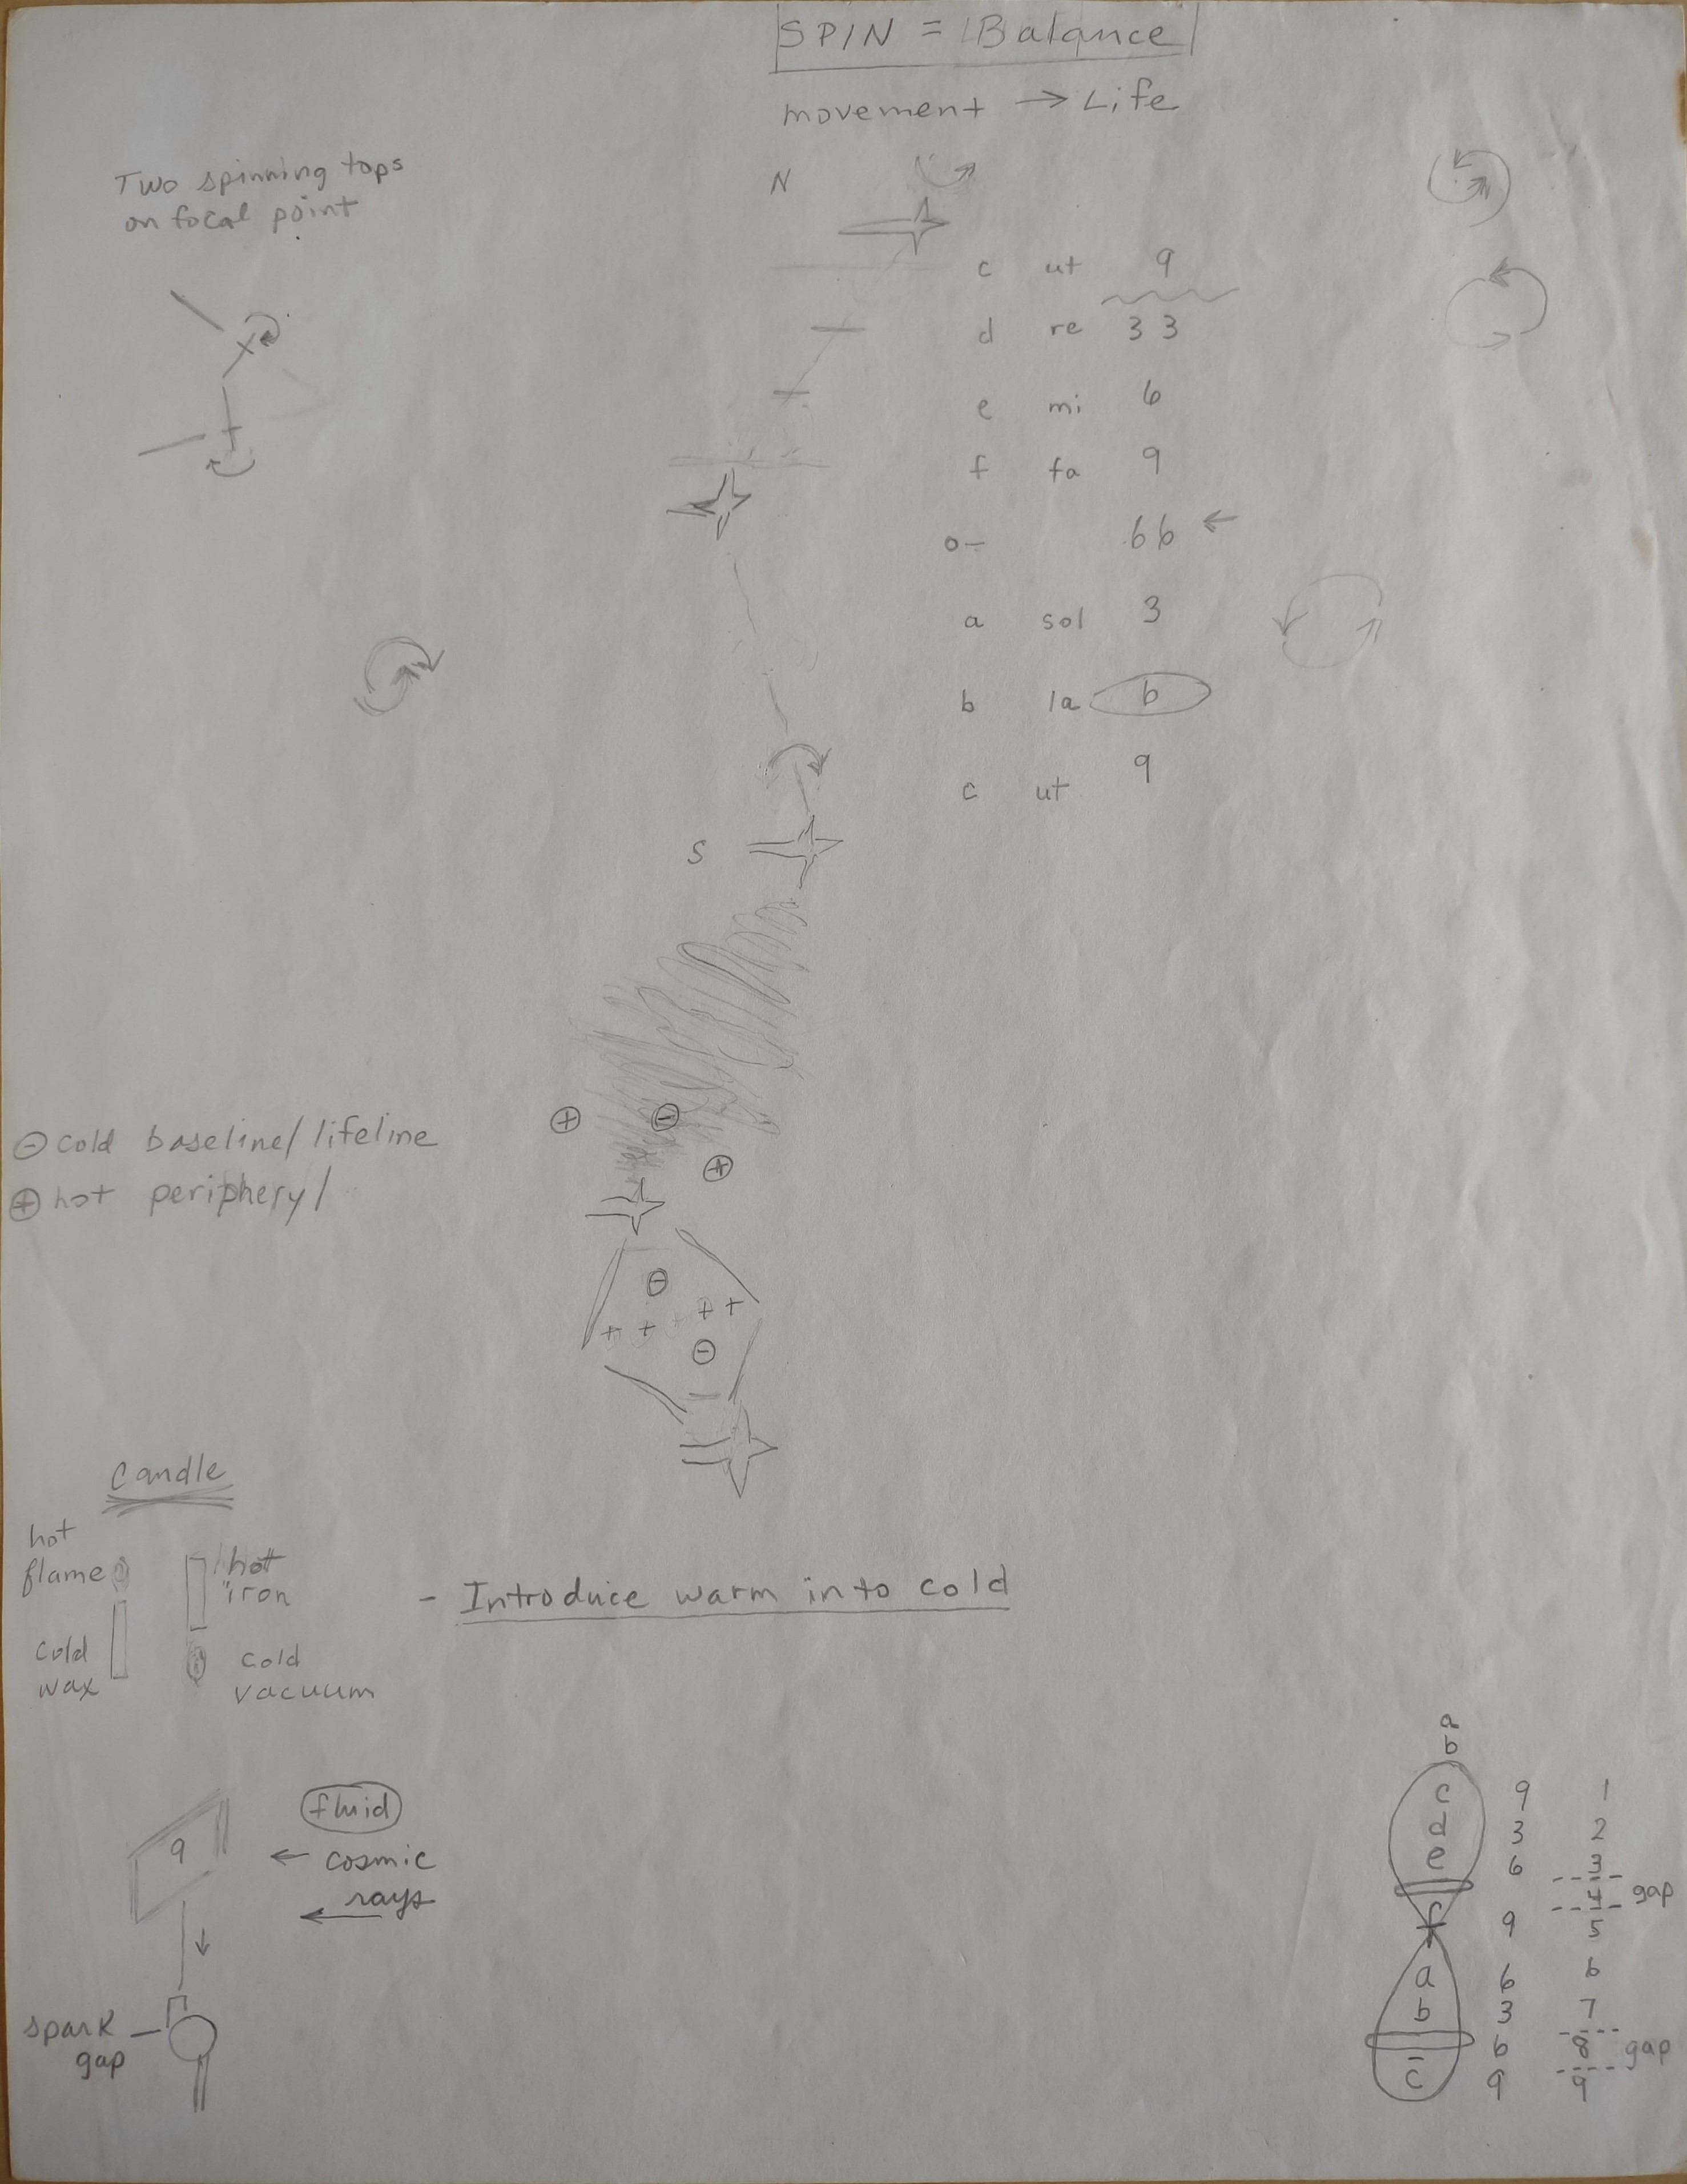 SPIN = Balance
movement → Life
Two spinning tops
on focal point
N
c ut 9
d re 3 3
e mi 6
f fa 9
o– 6 6 ←
a sol 3
b la 6
c ut 9
S
⊕ ⊖
⊕
⊖ cold baseline/lifeline
⊕ hot periphery/
⊖
+ + + +
⊖
Candle
hot
flame
cold
wax
hot
iron
cold
vacuum
- Introduce warm into cold
9
fluid
← cosmic
rays
←
spark
gap
a
b
c 9 1
d 3 2
e 6 3
4 gap
f 9 5
a 6 6
b 3 7
6 8 gap
c̄ 9 9